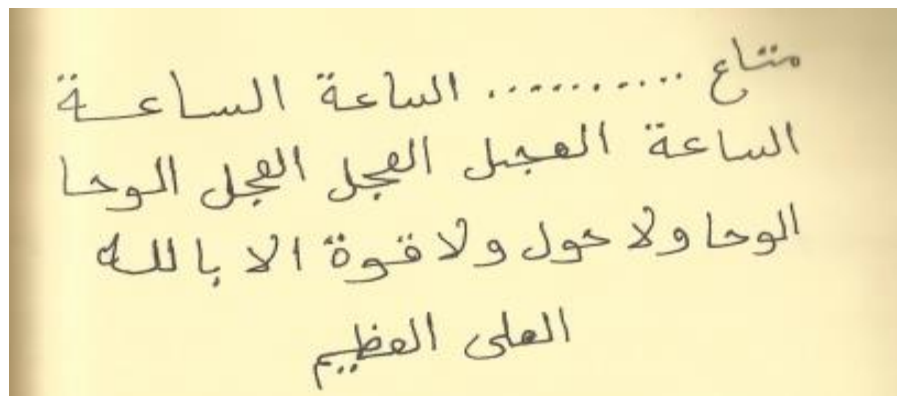 متاع .......... الساعة الساعـــة
الساعة العجل العجل العجل الوحا
الوحا ولا حول ولا قوة الا بالله
العلى العظيم